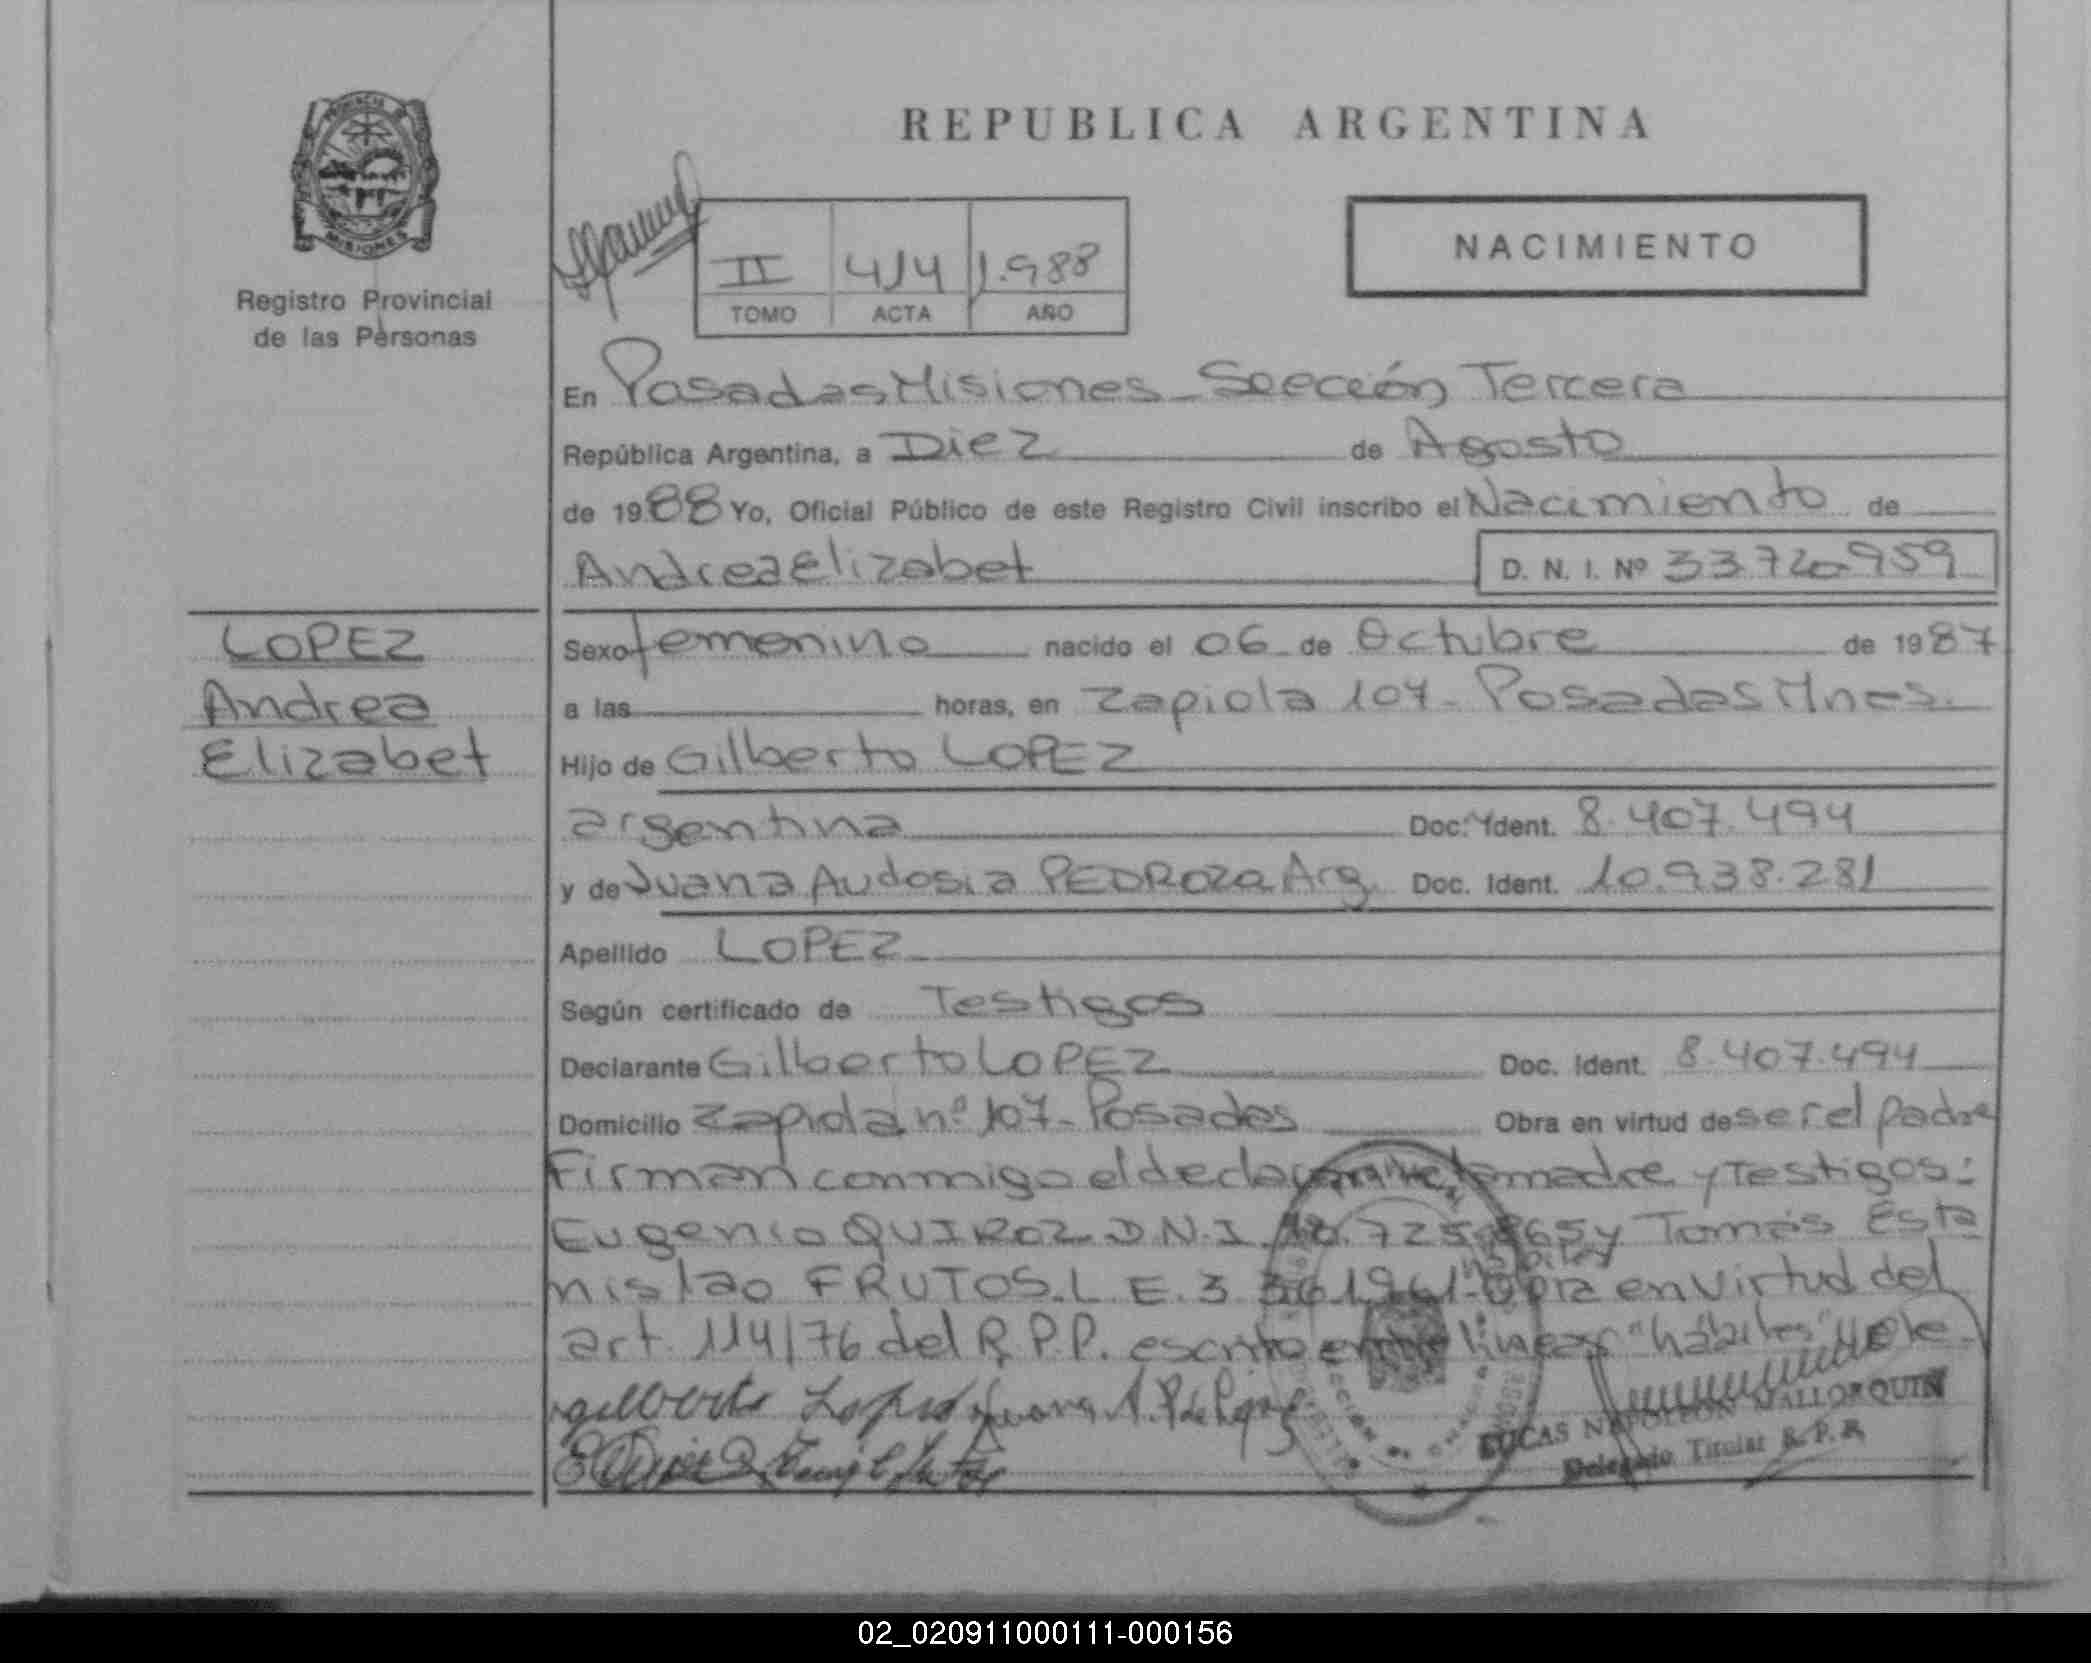 PROVINCIA DE
MISIONES
Registro Provincial
de las Personas
LOPEZ
Andrea
Elizabet
REPUBLICA ARGENTINA
II 414 1.988
TOMO ACTA AÑO
NACIMIENTO
En Posadas Misiones - Sección Tercera
República Argentina, a Diez de Agosto
de 1988 Yo, Oficial Público de este Registro Civil inscribo el Nacimiento de
Andrea Elizabet D. N. I. Nº 33.720.959
Sexo femenino nacido el 06 de Octubre de 1987
a las horas, en Zapiola 107 - Posadas Mnes.
Hijo de Gilberto LOPEZ
argentina Doc. Ident. 8.407.494
y de Juana Audosia PEDROZA Arg. Doc. Ident. 10.938.281
Apellido LOPEZ
Según certificado de Testigos
Declarante Gilberto LOPEZ Doc. Ident. 8.407.494
Domicilio Zapiola nº 107 - Posadas Obra en virtud de ser el padre
Firman conmigo el declarante, la madre y Testigos:
Eugenio QUIROZ D.N.I. y Tomás Esta
hábiles
nislao FRUTOS L.E. Obra en virtud del
art. 114/76 del R.P.P. escrito entre lineas "hábiles" Vale
Gilberto Lopez Juana A. P. de
LUCAS NAPOLEON MALLORQUIN
Delegado Titular R. P. P.
02_020911000111-000156